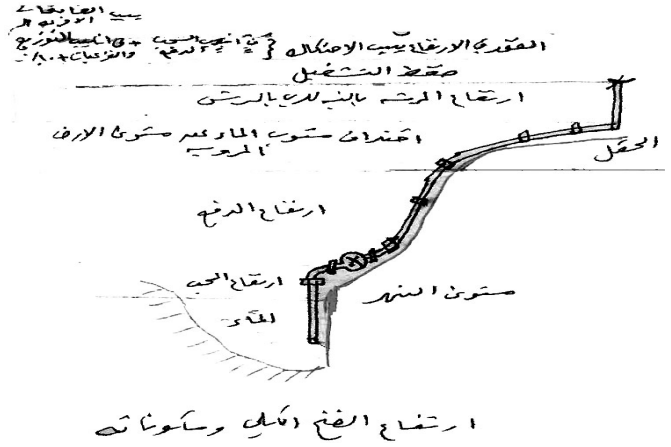 بسبب الضايعات
الفقد في الارتفاع بسبب الاحتكاك في انابيب السحب + في انابيب التوزيع
الدفع والفرعيات + ١٠٪
ضغط التشغيل
ارتفاع المرشه بالنسبه للري بالرش
اختلاف منسوب الماء عند مستوى الارض
المرويه
الحقل
ارتفاع الدفع
ارتفاع السحب
مستوى النهر
الماء
ارتفاع الضخ الكلي ومكوناته